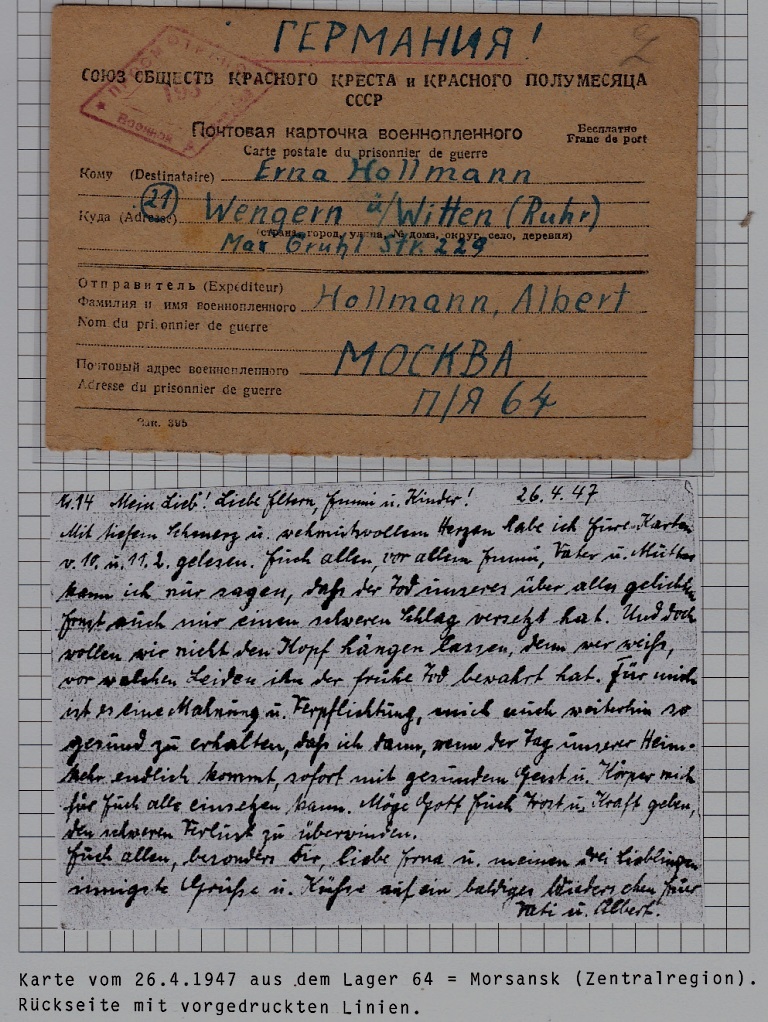 ГЕРМАНИЯ!
ПРОСМОТРЕНО
Военной
СОЮЗ ОБЩЕСТВ КРАСНОГО КРЕСТА и КРАСНОГО ПОЛУМЕСЯЦА
СССР
Почтовая карточка военнопленного
Бесплатно
Franc de port
Carte postale du prisonnier de guerre
Кому (Destinataire) Erna Hollmann
(21)
Куда (Adresse) Wengern ü/Witten (Ruhr)
(страна, город, улица, № дома, округ, село, деревня)
Max Gruhl Str. 229
Отправитель (Expéditeur)
Фамилия и имя военнопленного Hollmann, Albert
Nom du prisonnier de guerre
Почтовый адрес военнопленного МОСКВА
Adresse du prisonnier de guerre П/Я 64
Зак. 395
Nr. 14 Mein Lieb! Liebe Eltern, Emmi u. Kinder! 26.4.47
Mit tiefem Schmerz u. wehmutvollem Herzen habe ich Eure Karten
v. 10. u. 11.2. gelesen. Euch allen, vor allem Emmi, Vater u. Mutter
kann ich nur sagen, daß der Tod unseres über alles geliebten
Ernst auch mir einen schweren Schlag versetzt hat. Und doch
wollen wir nicht den Kopf hängen lassen, denn wer weiß,
vor welchen Leiden ihn der frühe Tod bewahrt hat. Für mich
ist es eine Mahnung u. Verpflichtung, mich auch weiterhin so
gesund zu erhalten, daß ich dann, wenn der Tag unserer Heim-
kehr endlich kommt, sofort mit gesundem Geist u. Körper mich
für Euch alle einsetzen kann. Möge Gott Euch Trost u. Kraft geben,
den schweren Verlust zu überwinden.
Euch allen, besonders Dir, liebe Erna u. meinen drei Lieblingen
innigste Grüße u. Küsse auf ein baldiges Wiedersehen Euer
Vati u. Albert.
Karte vom 26.4.1947 aus dem Lager 64 = Morsansk (Zentralregion).
Rückseite mit vorgedruckten Linien.